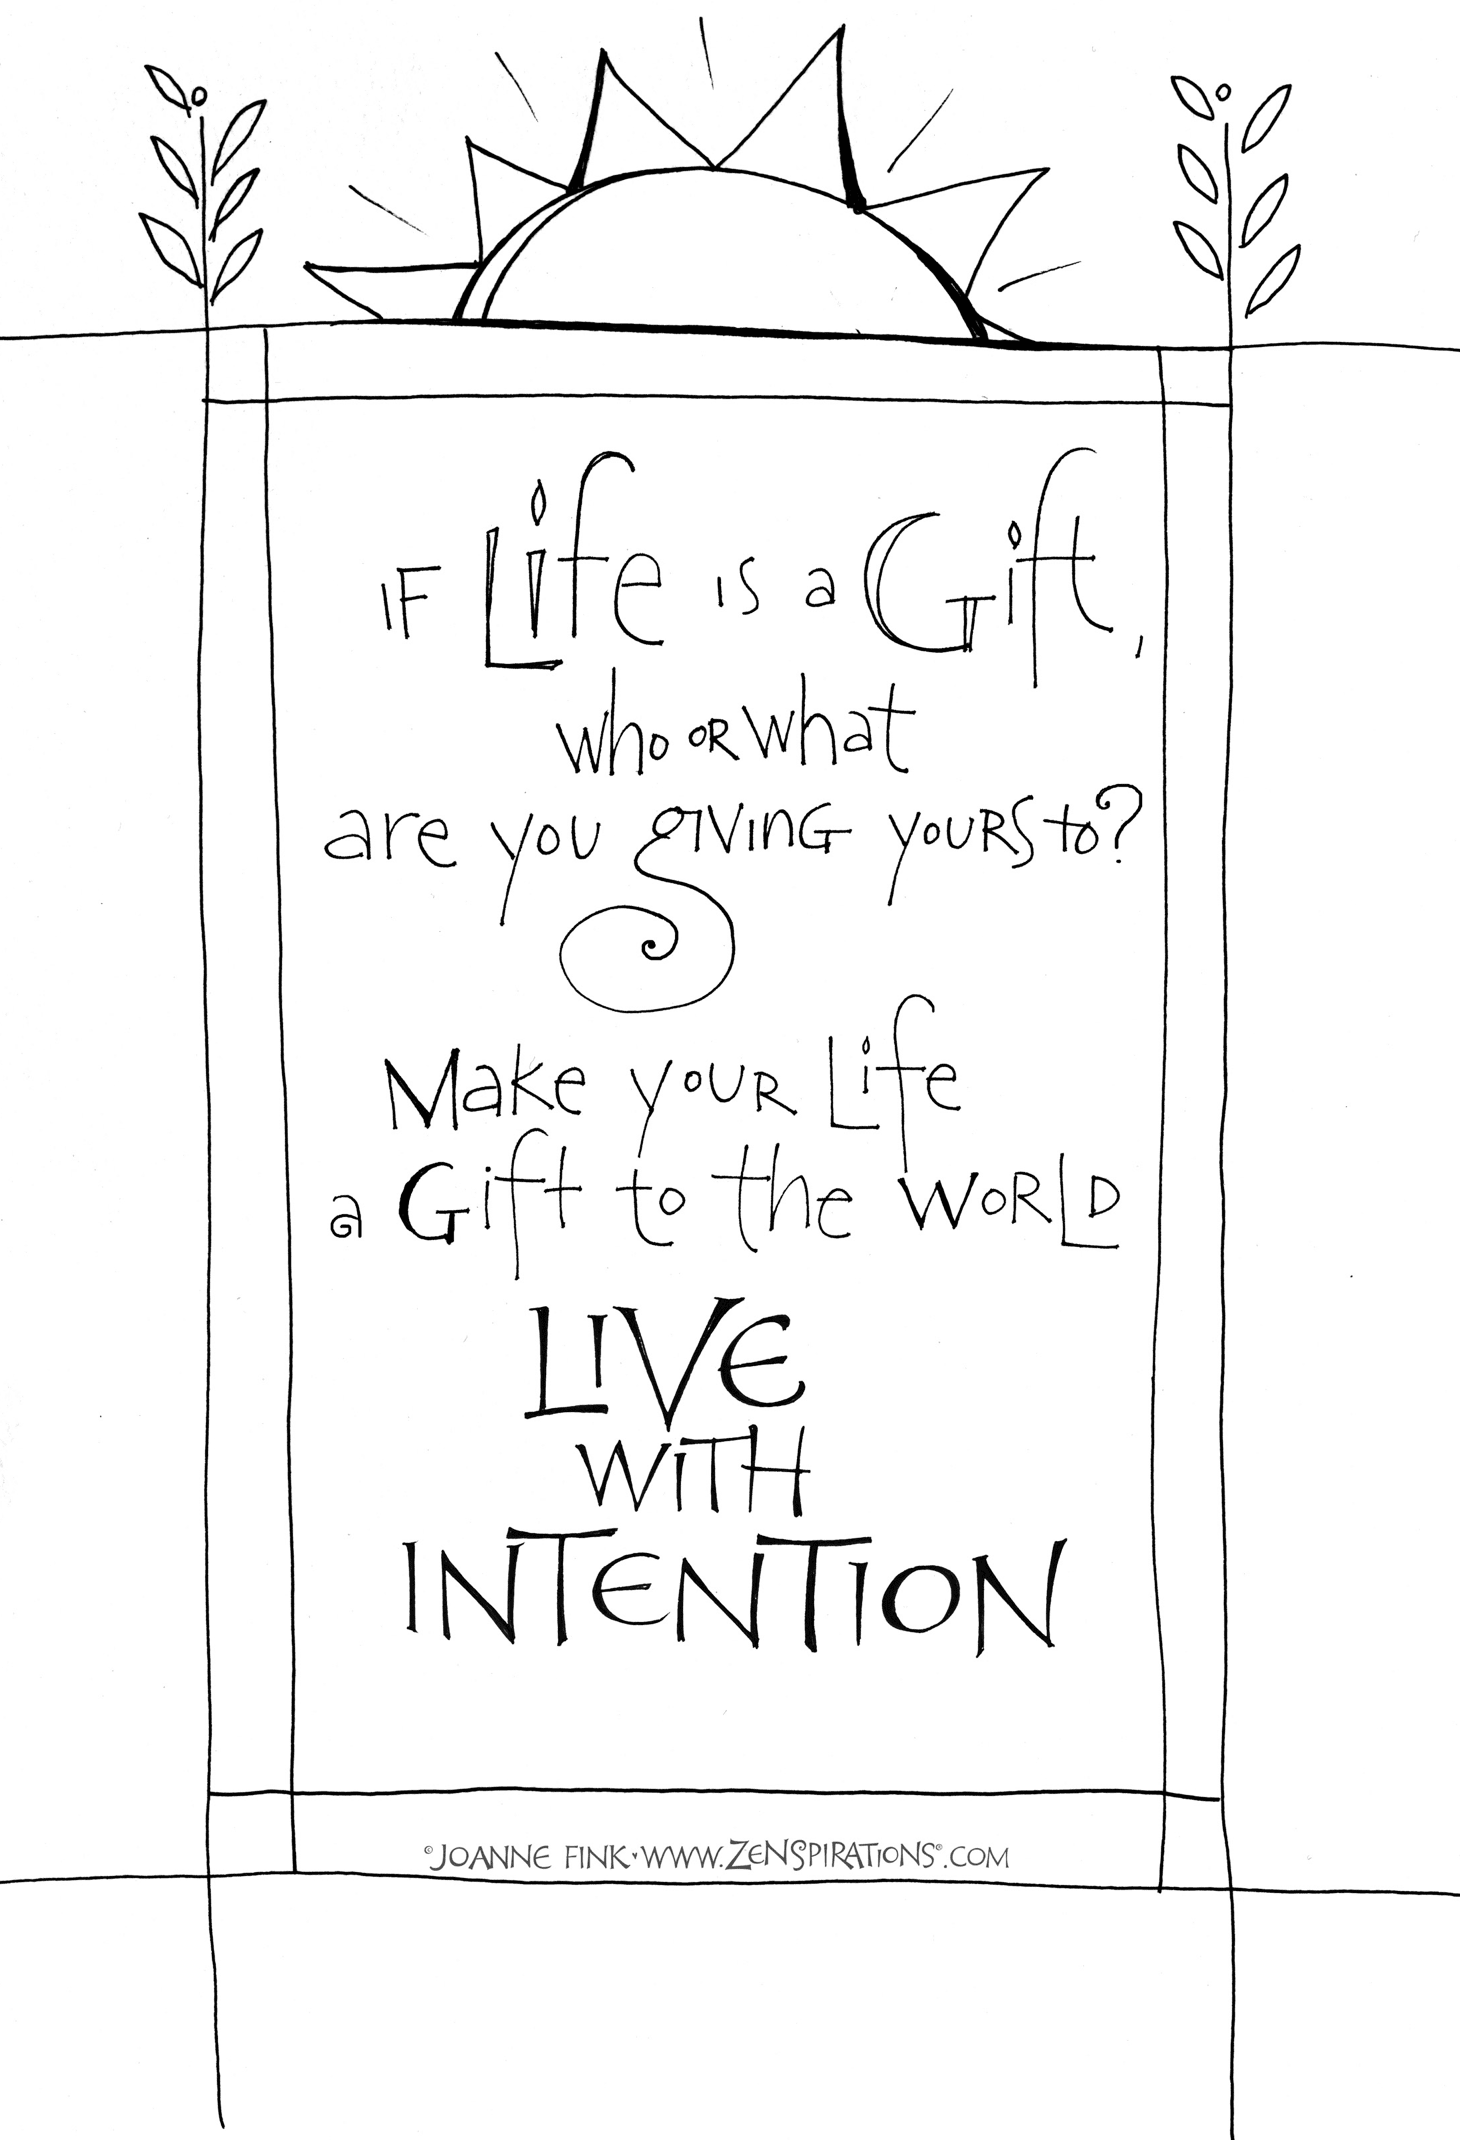 IF Life is a Gift,
who or what
are you giving yours to?
Make your Life
a Gift to the WORLD
LIVE
WITH
INTENTION
©JOANNE FINK♥WWW.ZENSPIRATIONS®.COM